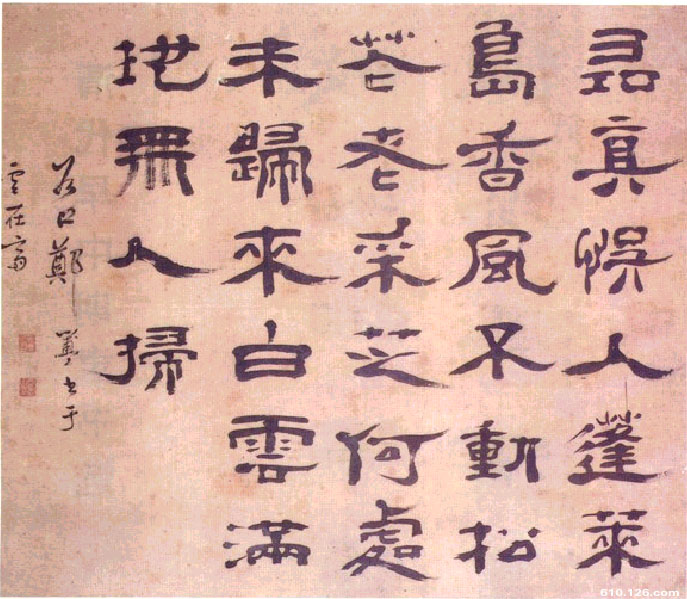 尋真悞入蓬萊
島香風不動松
花老采芝何處
未歸來白雲滿
地無人掃
谷口鄭簠書于
云在
610.126.com